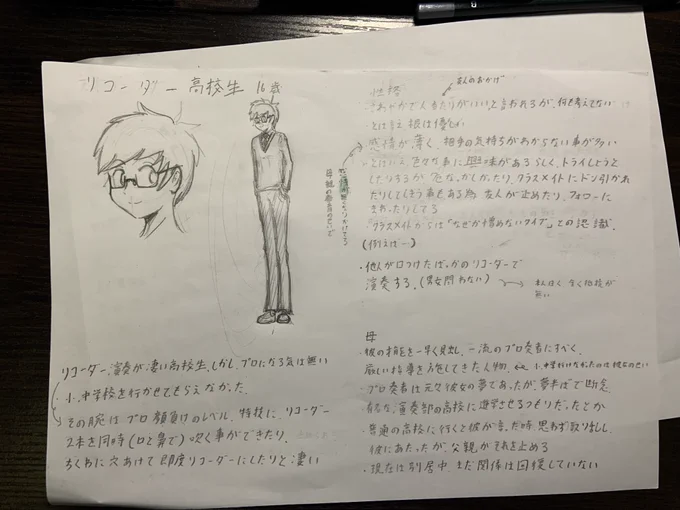 リコーダー高校生 16歳
リコーダー演奏が凄い高校生、しかし、プロになる気は無い
小、中学校を行かせてもらえなかった
その腕はプロ顔負けのレベル、特技に、リコーダー
2本を同時(口と鼻で)吹く事ができたり、
ちくわに穴あけて即席リコーダーにしたりと凄い
性格
友人のおかげ
人当たりがいいと言われるが、何も考えてない
とは言え根は優しい
感情が薄く、相手の気持ちがわからない事が多い
とはいえ色々な事に興味があるらしく、トライしようと
したりするが 危なっかしかったり、クラスメイトにドン引かれ
たりしてしまう事もある為 友人が止めたり、フォローに
まわったりしてる
クラスメイトからは"なぜか憎めないタイプ"との認識
(例えば…)
・他人が口つけたばっかのリコーダーで
演奏する。(男女問わない)
母
・彼の才能を一早く見出し、一流のプロ奏者にすべく、
厳しい指導を施してきた人物
・プロ奏者は元々彼女の夢であったが、夢半ばで断念
有名な演奏部の高校に進学させるつもりだったとか
・普通の高校に行くと彼が言った時 思わず取り乱し、
彼にあたったが、父親がそれを止める
・現在は別居中、まだ関係は回復していない